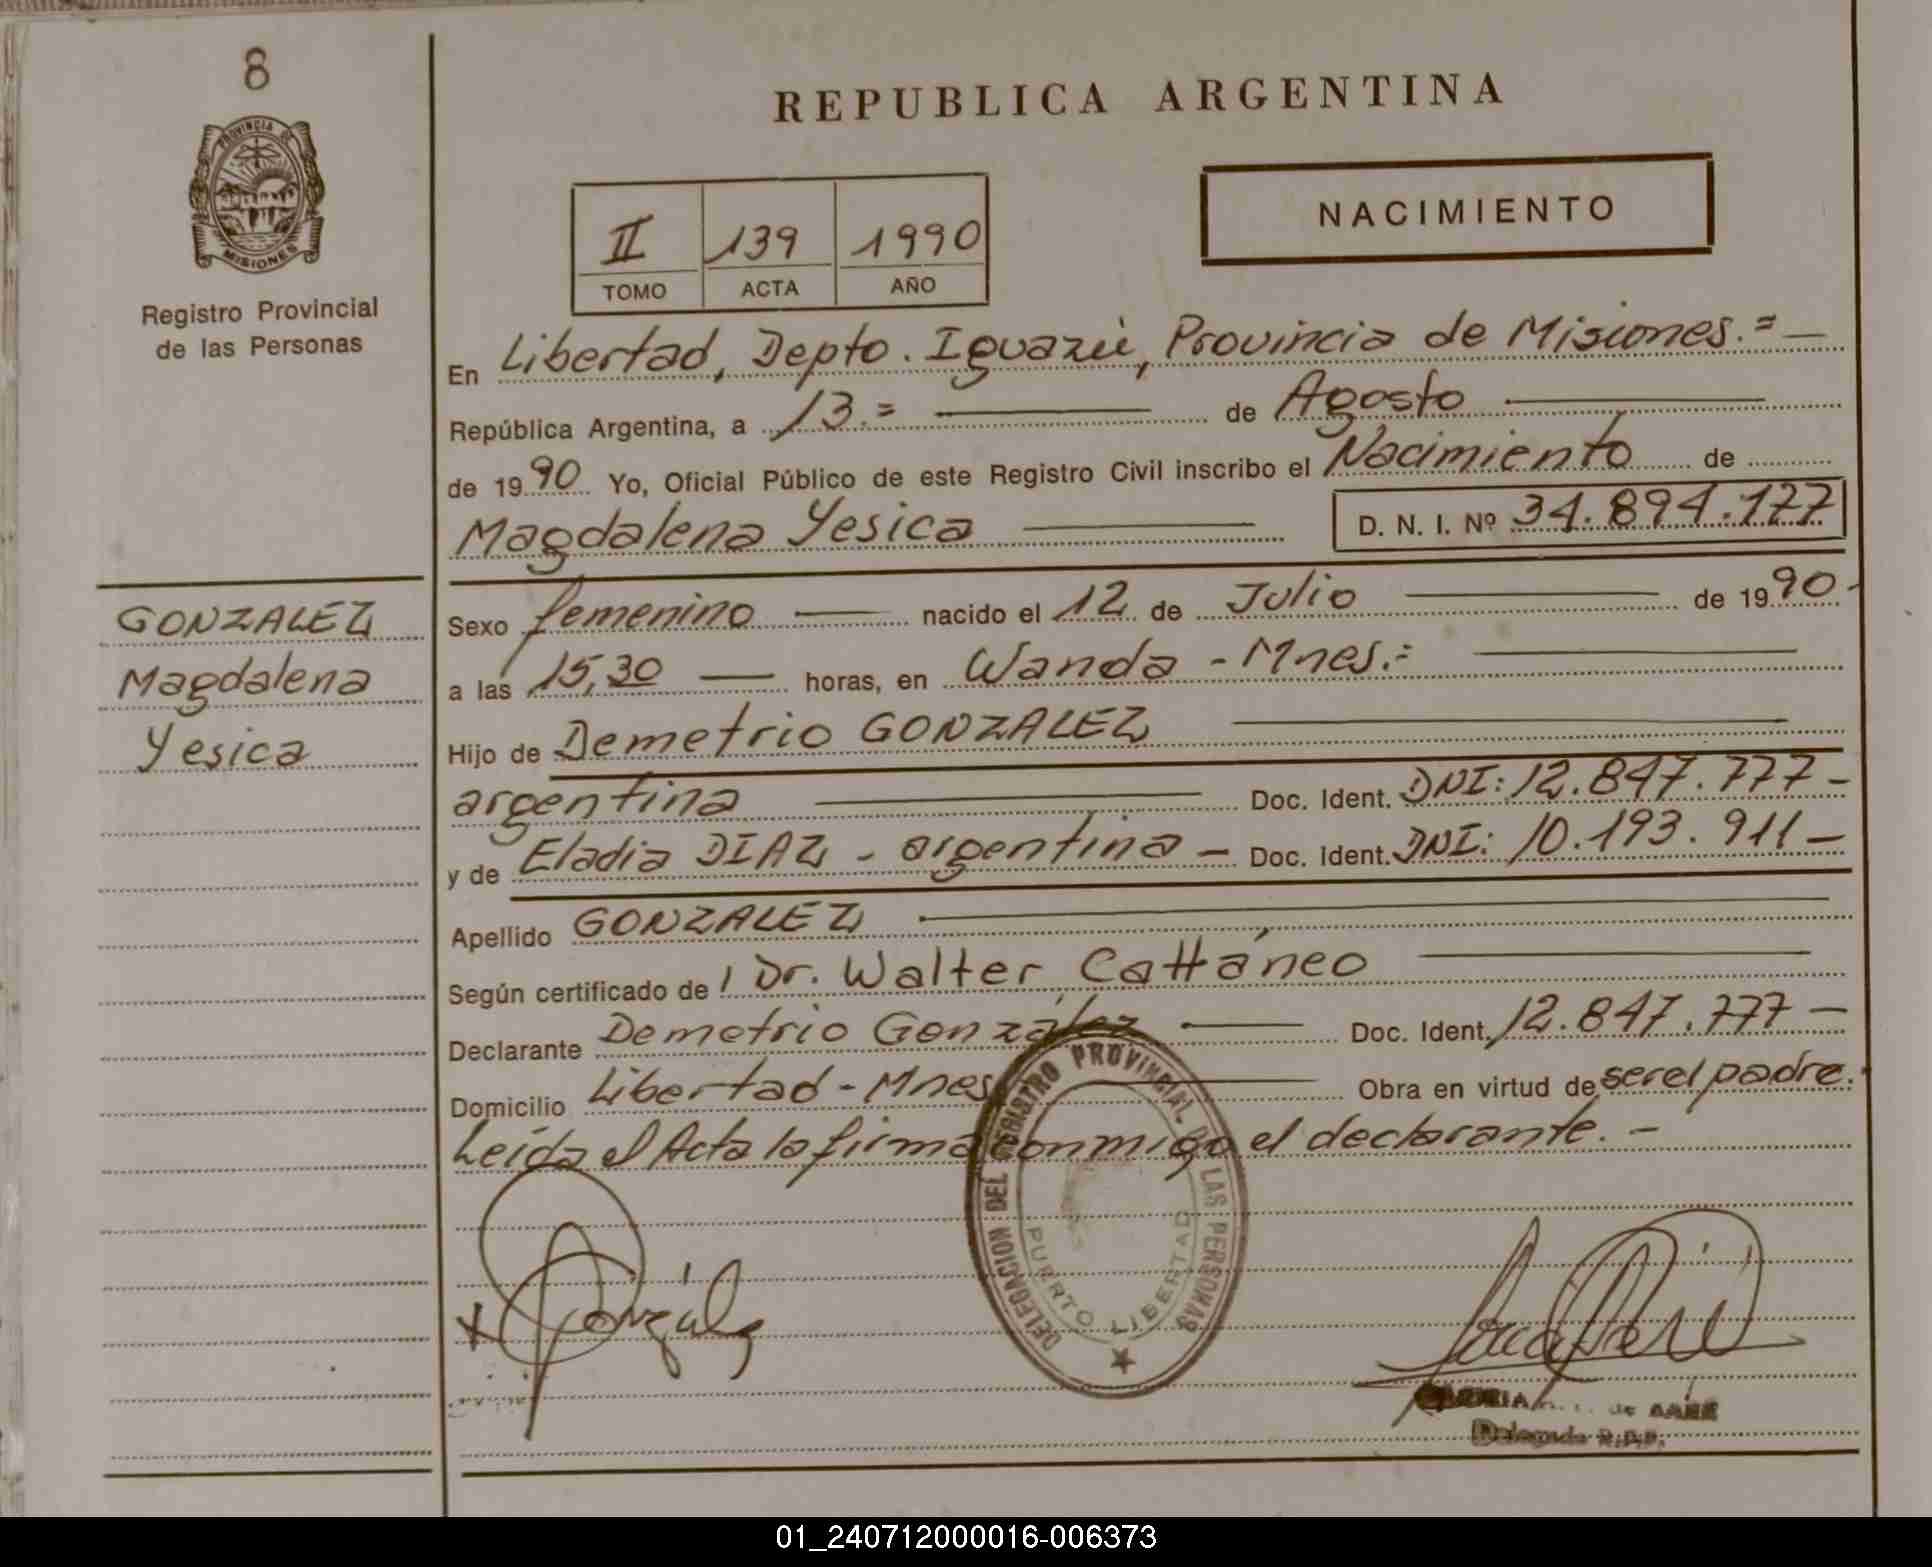 8
PROVINCIA DE
MISIONES
Registro Provincial
de las Personas
GONZALEZ
Magdalena
Yesica
REPUBLICA ARGENTINA
II 139 1990
TOMO ACTA AÑO
NACIMIENTO
En Libertad, Depto. Iguazú, Provincia de Misiones.=
República Argentina, a 13.= de Agosto
de 1990 Yo, Oficial Público de este Registro Civil inscribo el Nacimiento de
Magdalena Yesica D. N. I. Nº 34.894.177
Sexo femenino nacido el 12 de Julio de 1990-
a las 15,30 horas, en Wanda - Mnes.=
Hijo de Demetrio GONZALEZ
argentina Doc. Ident. DNI: 12.847.777-
y de Eladia DIAZ - argentina - Doc. Ident. DNI: 10.193.911-
Apellido GONZALEZ
Según certificado de Dr. Walter Cattáneo
Declarante Demetrio González Doc. Ident. 12.847.777-
Domicilio Libertad - Mnes Obra en virtud de ser el padre.
Leída el Acta la firma conmigo el declarante.-
DELEGACION DEL REGISTRO PROVINCIAL DE LAS PERSONAS
PUERTO LIBERTAD
Delegada R.P.P.
01_240712000016-006373